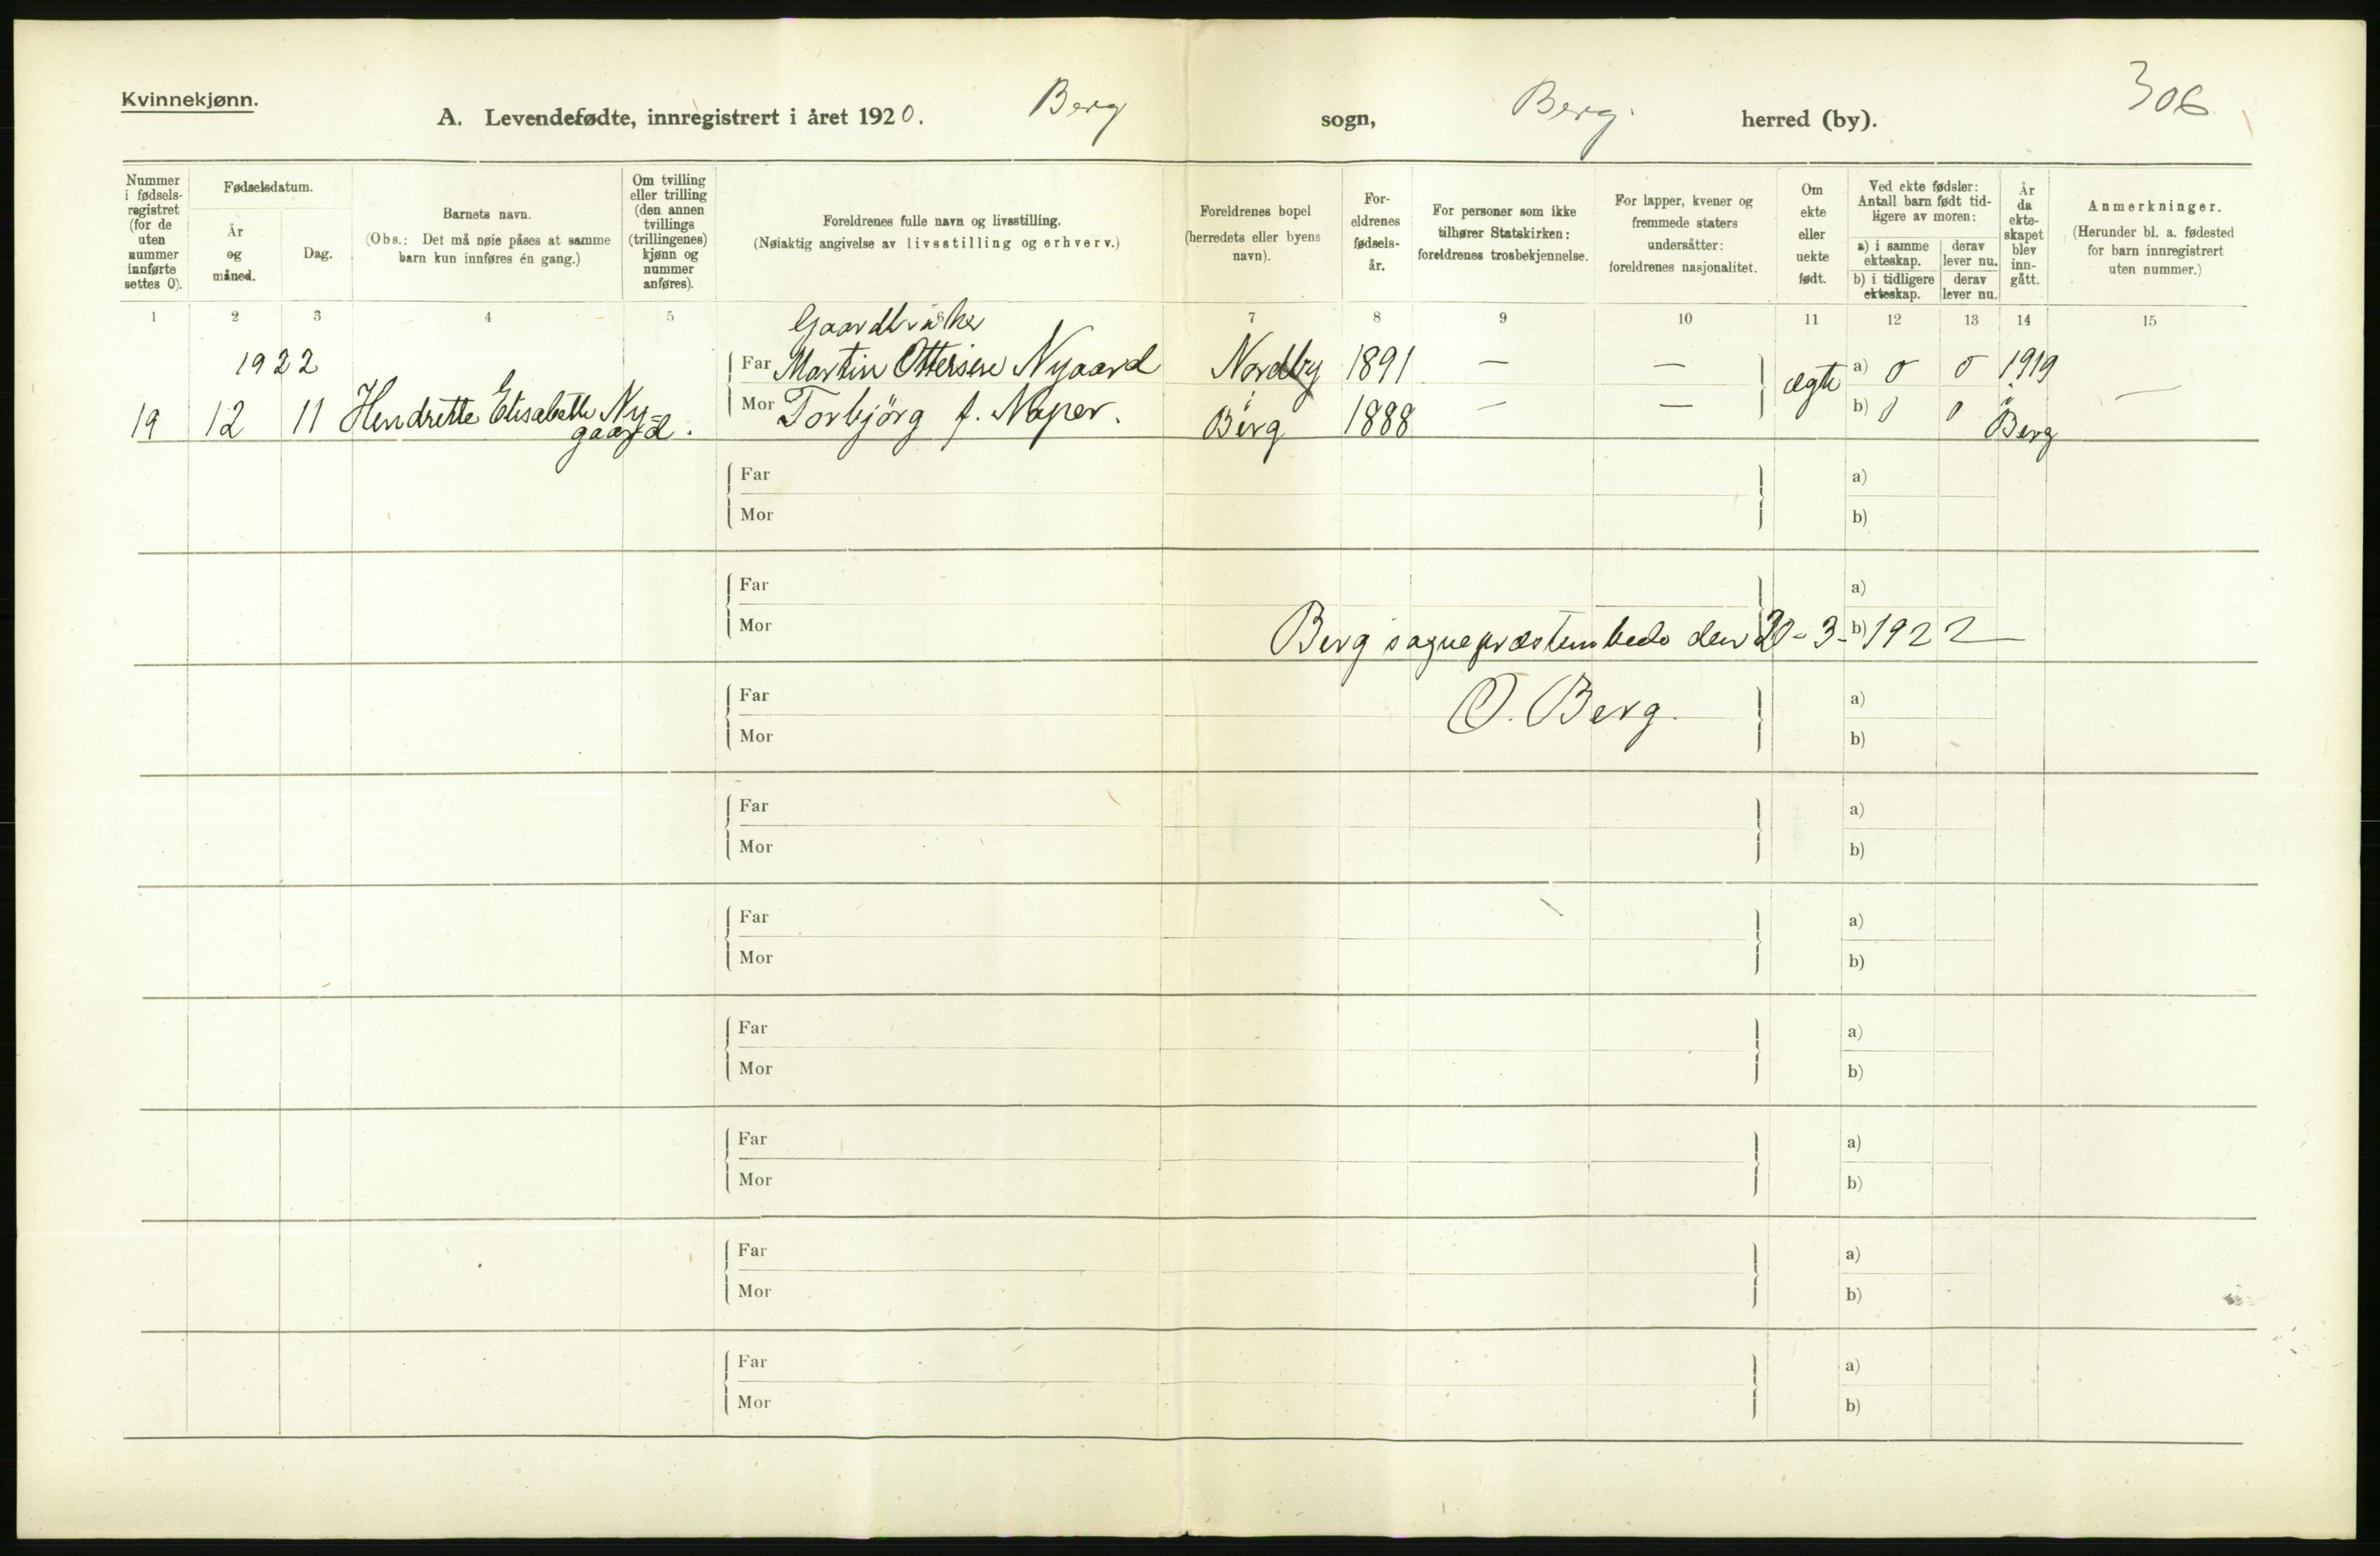 Kvinnekjønn.
A. Levendefødte, innregistrert i året 1920. Berg sogn, Berg. herred (by). 306
Nummer i fødsels-registret (for de uten nummer innførte settes 0).
Fødselsdatum.
År og måned.
Dag.
Barnets navn.
(Obs.: Det må nøie påses at samme barn kun innføres én gang.)
Om tvilling eller trilling (den annen tvillings (trillingenes) kjønn og nummer anføres).
Foreldrenes fulle navn og livsstilling.
(Nøiaktig angivelse av livsstilling og erhverv.)
Foreldrenes bopel (herredets eller byens navn).
For-eldrenes fødsels-år.
For personer som ikke tilhører Statskirken: foreldrenes trosbekjennelse.
For lapper, kvener og fremmede staters undersåtter: foreldrenes nasjonalitet.
Om ekte eller uekte født.
Ved ekte fødsler: Antall barn født tid-ligere av moren:
a) i samme ekteskap.
derav lever nu.
b) i tidligere ekteskap.
derav lever nu.
År da ekte-skapet blev inn-gått.
Anmerkninger.
(Herunder bl. a. fødested for barn innregistrert uten nummer.)
1 2 3 4 5 6 7 8 9 10 11 12 13 14 15
Gaardbruker
1922 Far Martin Ottersen Nygaard Nordby 1891 — — ægte a) 0 0 1919
19 12 11 Hendrette Elisabeth Ny-gaard. Mor Torbjörg f. Berg 1888 — — b) 0 0 Berg —
Far a)
Mor b)
Far a)
Mor Berg sogneprestembede den 20-3- b) 1922
Far O. Berg. a)
Mor b)
Far a)
Mor b)
Far a)
Mor b)
Far a)
Mor b)
Far a)
Mor b)
Far a)
Mor b)
Far a)
Mor b)